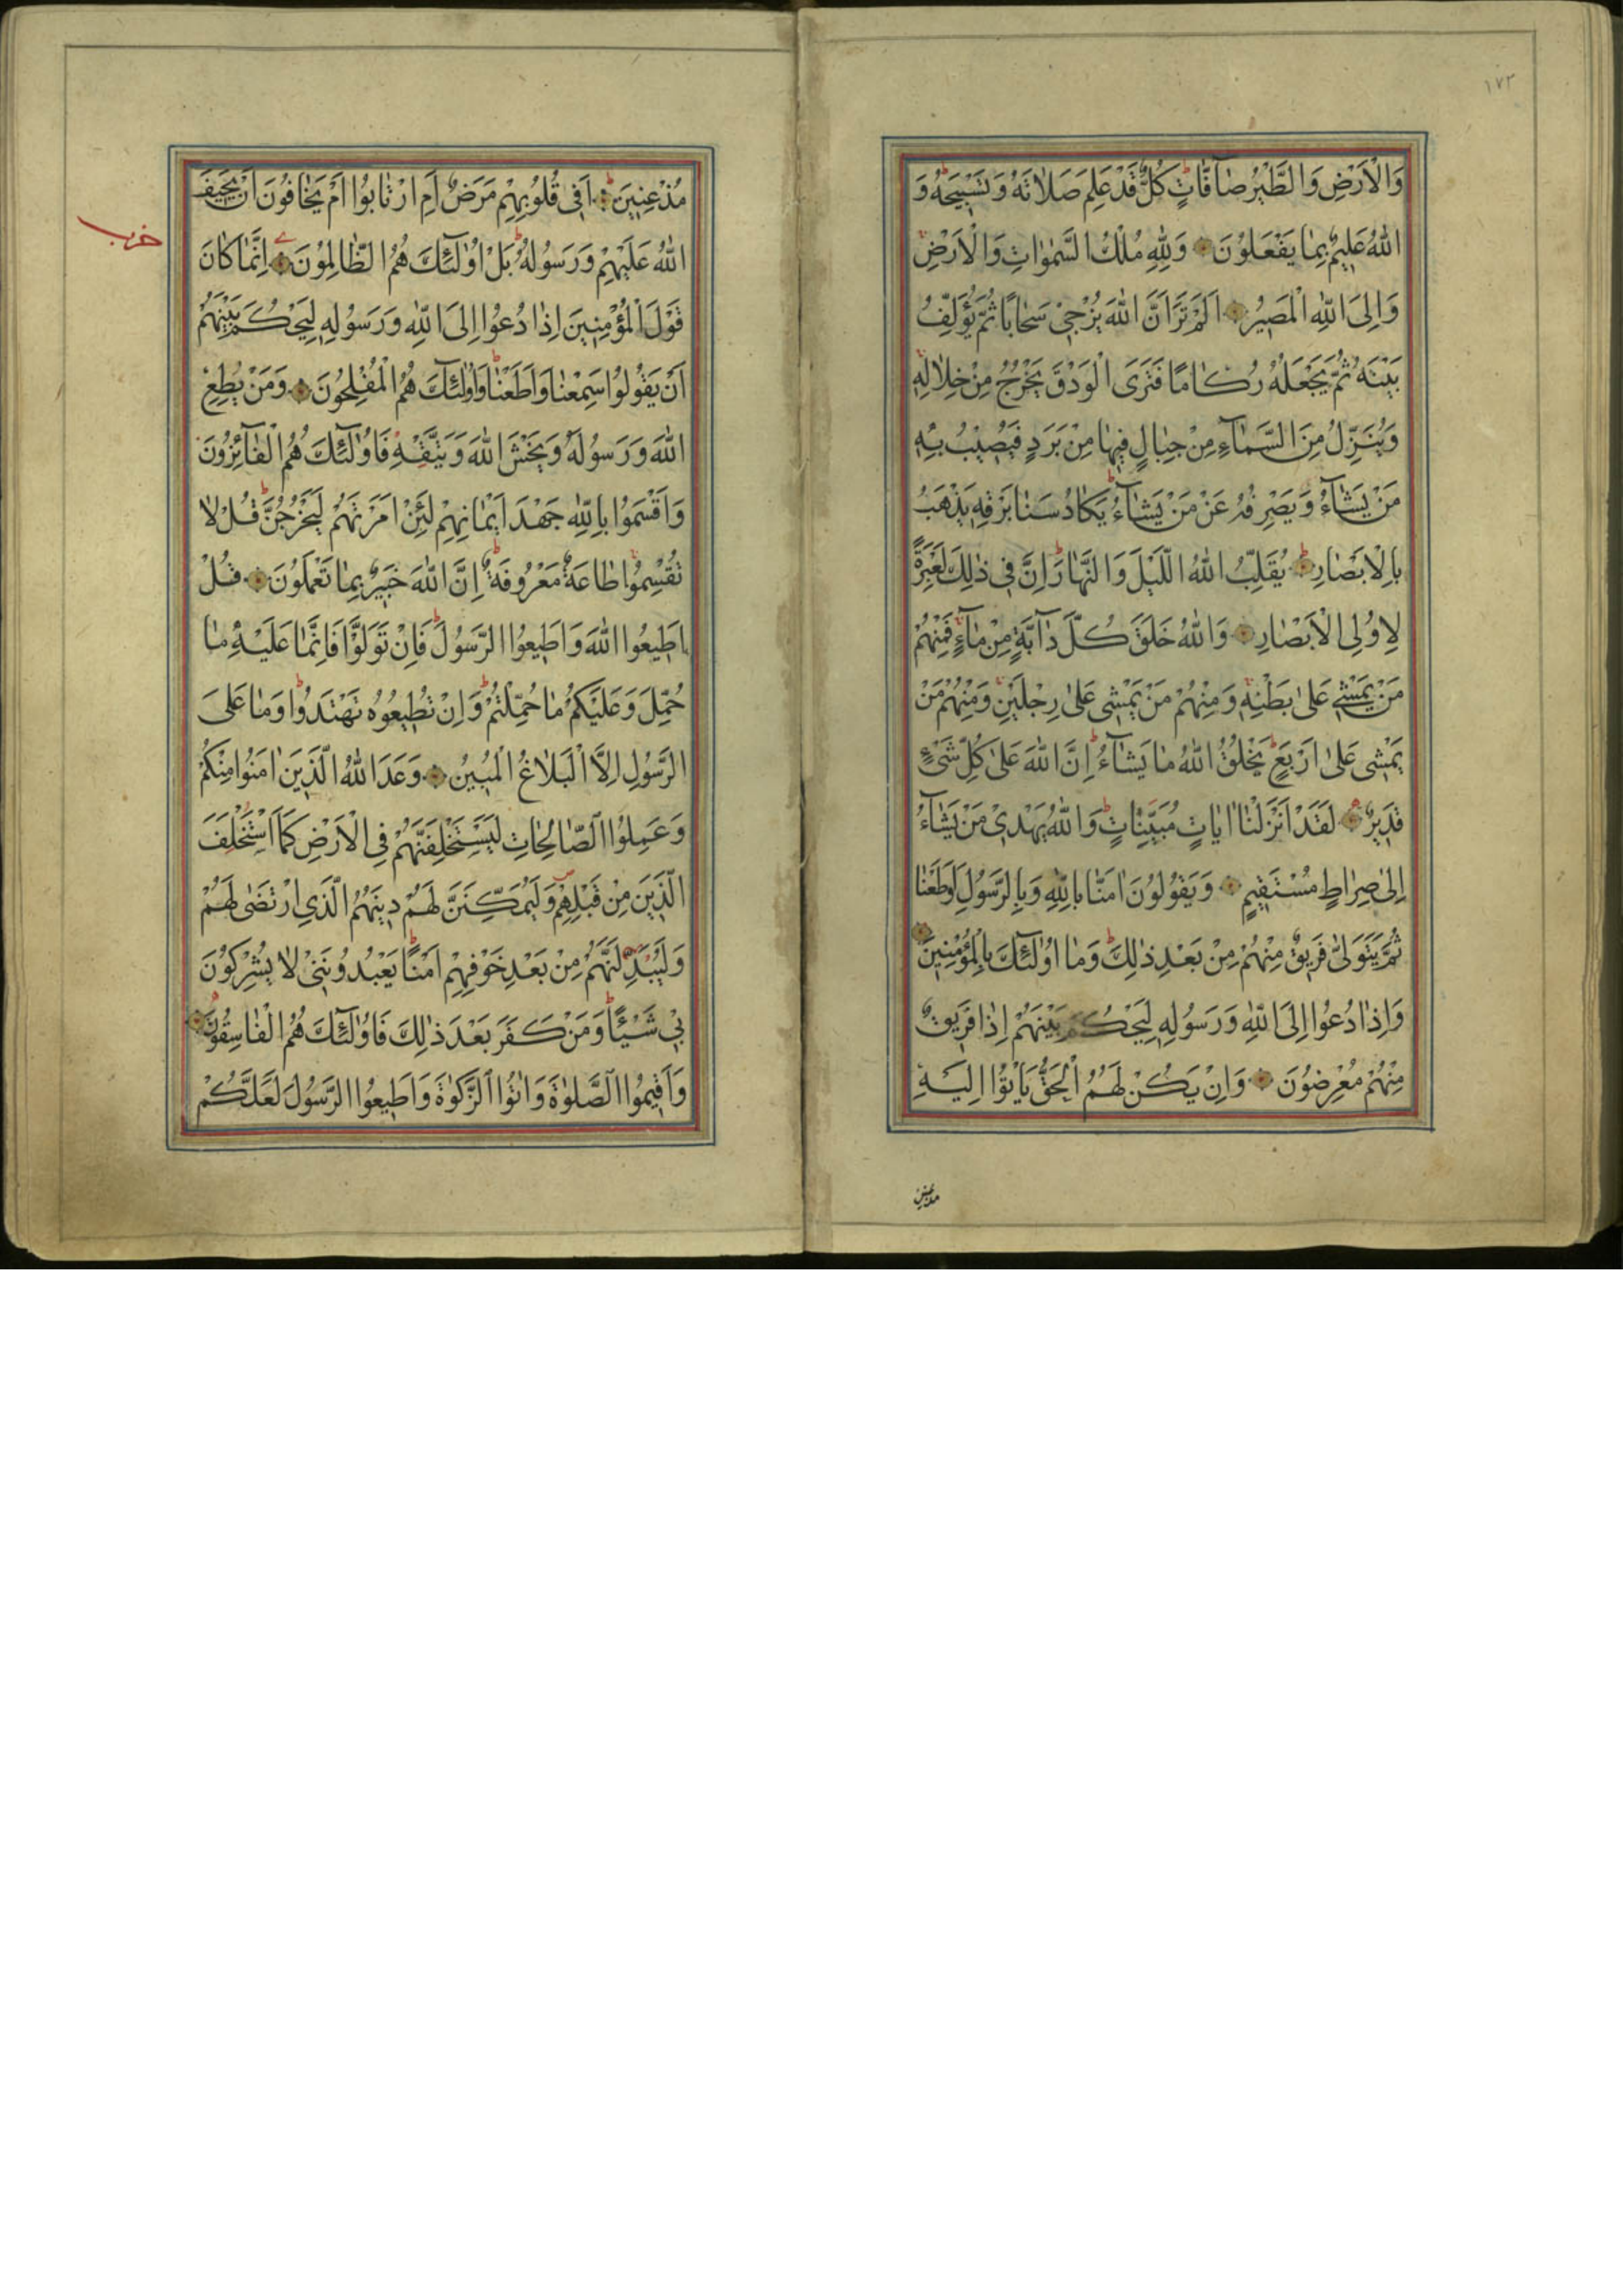 ١٧٢
وَالْاَرْضِ وَالطَّيْرُ صَآفَّاتٍ كُلٌّ قَدْ عَلِمَ صَلَاتَهُ وَتَسْبِيحَهُ وَ
اللّٰهُ عَلِيمٌ بِمَا يَفْعَلُونَ وَلِلّٰهِ مُلْكُ السَّمٰوَاتِ وَالْاَرْضِ
وَاِلَى اللّٰهِ الْمَصِيرُ اَلَمْ تَرَ اَنَّ اللّٰهَ يُزْجِى سَحَابًا ثُمَّ يُؤَلِّفُ
بَيْنَهُ ثُمَّ يَجْعَلُهُ رُكَامًا فَتَرَى الْوَدْقَ يَخْرُجُ مِنْ خِلَالِهِ
وَيُنَزِّلُ مِنَ السَّمَآءِ مِنْ جِبَالٍ فِيهَا مِنْ بَرَدٍ فَيُصِيبُ بِهِ
مَنْ يَشَآءُ وَيَصْرِفُهُ عَنْ مَنْ يَشَآءُ يَكَادُ سَنَا بَرْقِهِ يَذْهَبُ
بِالْاَبْصَارِ يُقَلِّبُ اللّٰهُ الَّيْلَ وَالنَّهَارَ اِنَّ فِى ذٰلِكَ لَعِبْرَةً
لِاُولِى الْاَبْصَارِ وَاللّٰهُ خَلَقَ كُلَّ دَآبَّةٍ مِنْ مَآءٍ فَمِنْهُمْ
مَنْ يَمْشِى عَلٰى بَطْنِهِ وَمِنْهُمْ مَنْ يَمْشِى عَلٰى رِجْلَيْنِ وَمِنْهُمْ مَنْ
يَمْشِى عَلٰى اَرْبَعٍ يَخْلُقُ اللّٰهُ مَا يَشَآءُ اِنَّ اللّٰهَ عَلٰى كُلِّ شَىْءٍ
قَدِيرٌ لَقَدْ اَنْزَلْنَا اٰيَاتٍ مُبَيِّنَاتٍ وَاللّٰهُ يَهْدِى مَنْ يَشَآءُ
اِلٰى صِرَاطٍ مُسْتَقِيمٍ وَيَقُولُونَ اٰمَنَّا بِاللّٰهِ وَبِالرَّسُولِ وَاَطَعْنَا
ثُمَّ يَتَوَلّٰى فَرِيقٌ مِنْهُمْ مِنْ بَعْدِ ذٰلِكَ وَمَا اُولٰئِكَ بِالْمُؤْمِنِينَ
وَاِذَا دُعُوا اِلَى اللّٰهِ وَرَسُولِهِ لِيَحْكُمَ بَيْنَهُمْ اِذَا فَرِيقٌ
مِنْهُمْ مُعْرِضُونَ وَاِنْ يَكُنْ لَهُمُ الْحَقُّ يَاْتُوا اِلَيْهِ
مذعنين
مُذْعِنِينَ اَفِى قُلُوبِهِمْ مَرَضٌ اَمِ ارْتَابُوا اَمْ يَخَافُونَ اَنْ يَحِيفَ
اللّٰهُ عَلَيْهِمْ وَرَسُولُهُ بَلْ اُولٰئِكَ هُمُ الظَّالِمُونَ اِنَّمَا كَانَ
حزب
قَوْلَ الْمُؤْمِنِينَ اِذَا دُعُوا اِلَى اللّٰهِ وَرَسُولِهِ لِيَحْكُمَ بَيْنَهُمْ
اَنْ يَقُولُوا سَمِعْنَا وَاَطَعْنَا وَاُولٰئِكَ هُمُ الْمُفْلِحُونَ وَمَنْ يُطِعِ
اللّٰهَ وَرَسُولَهُ وَيَخْشَ اللّٰهَ وَيَتَّقْهِ فَاُولٰئِكَ هُمُ الْفَآئِزُونَ
وَاَقْسَمُوا بِاللّٰهِ جَهْدَ اَيْمَانِهِمْ لَئِنْ اَمَرْتَهُمْ لَيَخْرُجُنَّ قُلْ لَا
تُقْسِمُوا طَاعَةٌ مَعْرُوفَةٌ اِنَّ اللّٰهَ خَبِيرٌ بِمَا تَعْمَلُونَ قُلْ
اَطِيعُوا اللّٰهَ وَاَطِيعُوا الرَّسُولَ فَاِنْ تَوَلَّوْا فَاِنَّمَا عَلَيْهِ مَا
حُمِّلَ وَعَلَيْكُمْ مَا حُمِّلْتُمْ وَاِنْ تُطِيعُوهُ تَهْتَدُوا وَمَا عَلَى
الرَّسُولِ اِلَّا الْبَلَاغُ الْمُبِينُ وَعَدَ اللّٰهُ الَّذِينَ اٰمَنُوا مِنْكُمْ
وَعَمِلُوا الصَّالِحَاتِ لَيَسْتَخْلِفَنَّهُمْ فِى الْاَرْضِ كَمَا اسْتَخْلَفَ
الَّذِينَ مِنْ قَبْلِهِمْ وَلَيُمَكِّنَنَّ لَهُمْ دِينَهُمُ الَّذِى ارْتَضٰى لَهُمْ
وَلَيُبَدِّلَنَّهُمْ مِنْ بَعْدِ خَوْفِهِمْ اَمْنًا يَعْبُدُونَنِى لَا يُشْرِكُونَ
بِى شَيْئًا وَمَنْ كَفَرَ بَعْدَ ذٰلِكَ فَاُولٰئِكَ هُمُ الْفَاسِقُونَ
وَاَقِيمُوا الصَّلٰوةَ وَاٰتُوا الزَّكٰوةَ وَاَطِيعُوا الرَّسُولَ لَعَلَّكُمْ